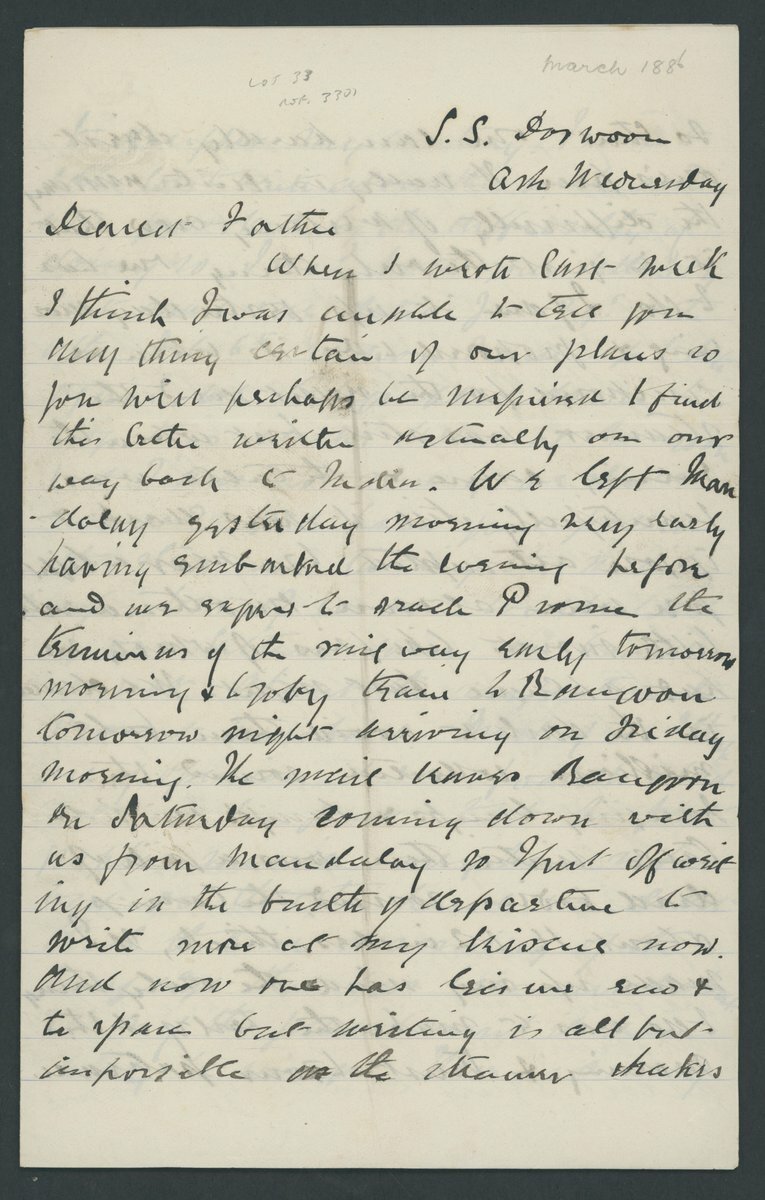 Lot 33
March 1886
ref. 3301
S. S. Doowoon
Ash Wednesday
Dearest Father
When I wrote last week
I think I was unable to tell you
any thing certain of our plans so
you will perhaps be surprised to find
this letter written actually on our
way back to India. We left Man
dalay yesterday morning very early
having embarked the evening before
and we expect to reach Prome the
terminus of the railway early tomorrow
morning & to go by train to Rangoon
tomorrow night arriving on Friday
morning. The mail leaves Rangoon
on Saturday coming down with
us from Mandalay so I put off writ
ing in the bustle of departure to
write more at my leisure now.
And now one has leisure eno &
to spare but writing is all but
impossible as the steamer shakes